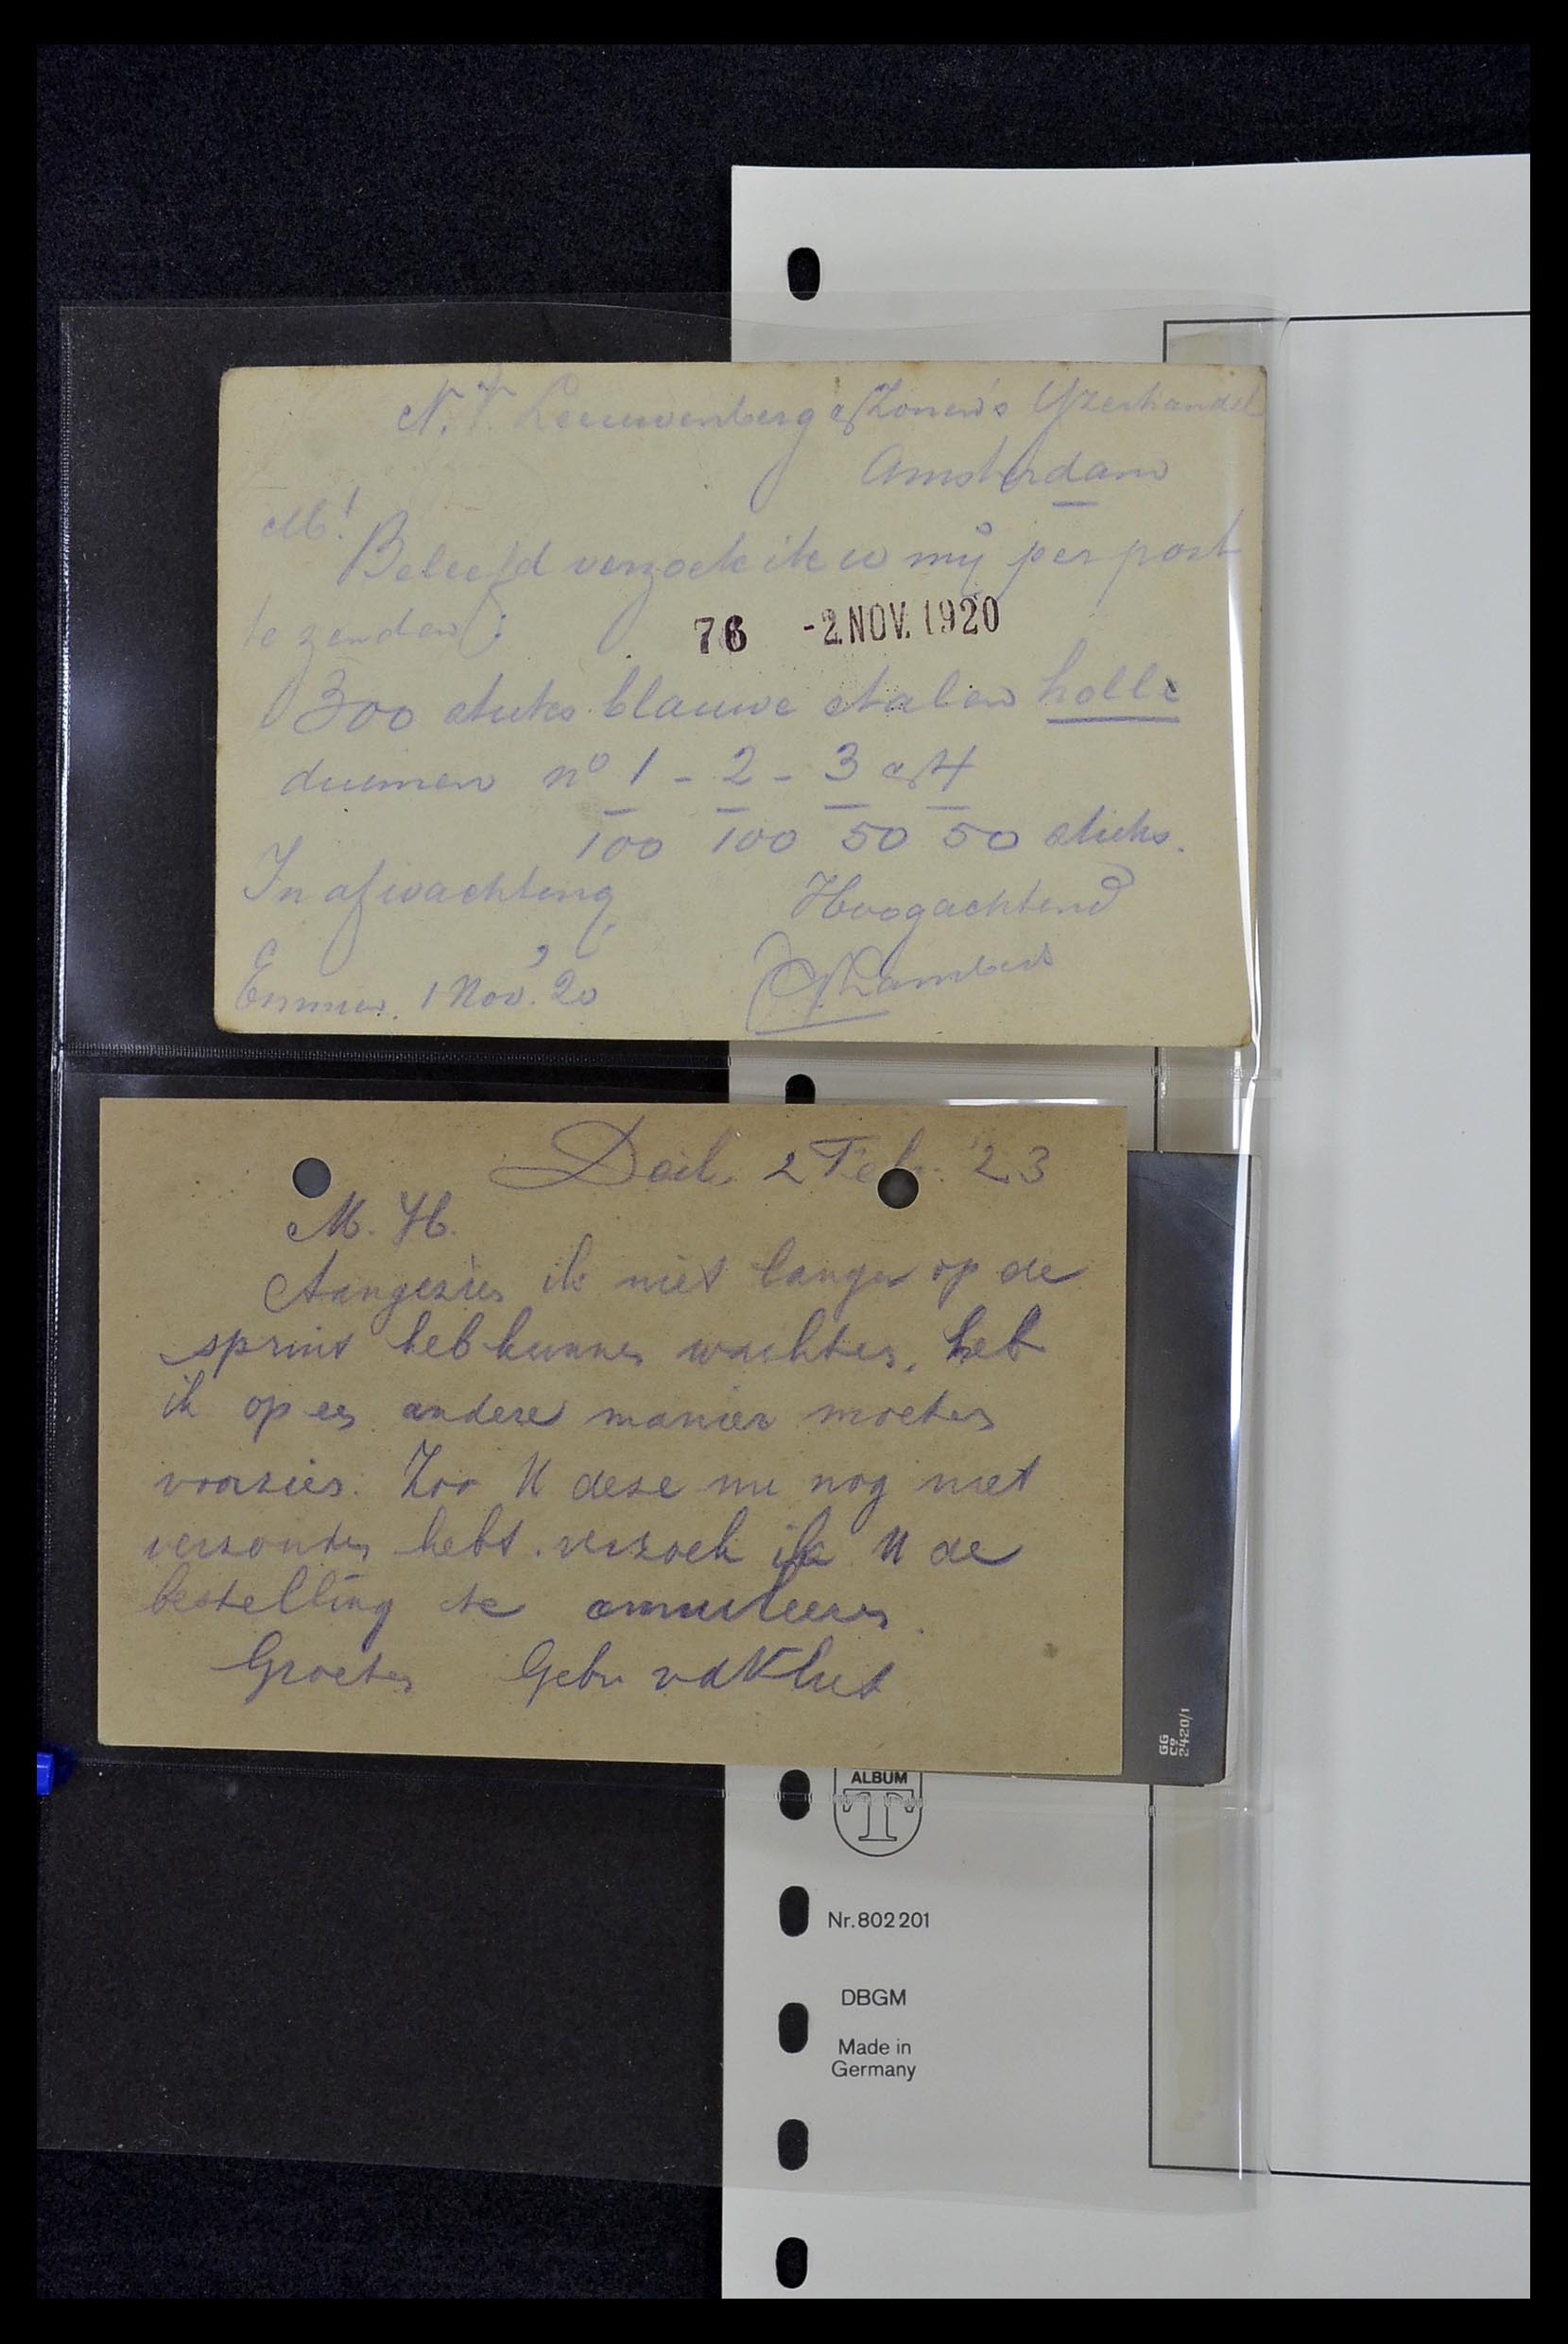 N.V. Leeuwenberg & Zonen's Yzerhandel
Amsterdam
M!
Beleefd verzoek ik u mij per post
te zenden:
76 -2.NOV.1920
300 stuks blauwe stalen holle
duimen no 1 - 2 - 3 & 4
100 100 50 50 stuks.
In afwachting,
Hoogachtend
Emmen, 1 Nov. 20
Lambers
Deil, 2 Feb. '23
M. H.
Aangezien ik niet langer op de
heb kunnen wachten, heb
ik op een andere manier moeten
voorzien. Zoo U deze nu nog niet
verzonden hebt. verzoek ik U de
bestelling te annuleeren.
Groeten Gebr vd Vliet
GG
Co
2420/1
ALBUM
T
Nr. 802 201
DBGM
Made in
Germany